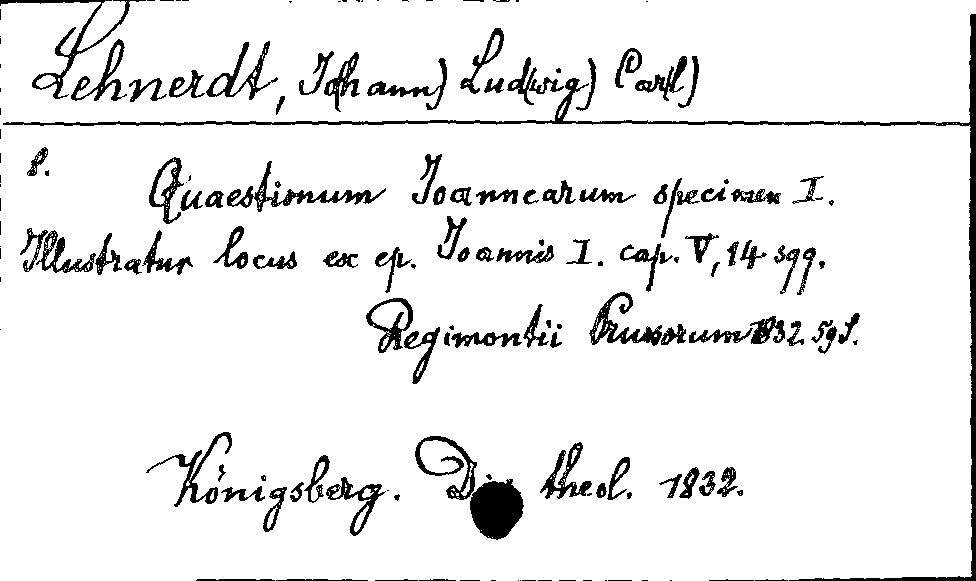 Lehnerdt, Joh(ann) Lud(wig) Car(l)
P.
Quaestionum Joannearum specimen I.
Illustratur locus ex ep. Joannis I. cap. V, 14 sqq.
Regimontii Prussorum 1832. 59 S.
Königsberg. Diss. theol. 1832.